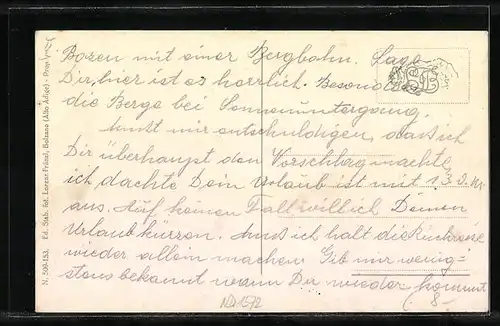 Bozen mit einer Bergbahn. Sage
Dir, hier ist es herrlich. Besonders
die Berge bei Sonnenuntergang.
Musst mir entschuldigen, dass ich
Dir überhaupt den Vorschlag machte
ich dachte Dein Urlaub ist mit 1.3.
aus. Auf keinen Fall will ich Deinen
Urlaub kürzen. Muss ich halt die Rückreise
wieder allein machen. Gib mir wenig=
stens bekannt wann Du wieder kommst
N. 599-153. Ed. Stab. fot. Lorenz Fränzl, Bolzano (Alto Adige)